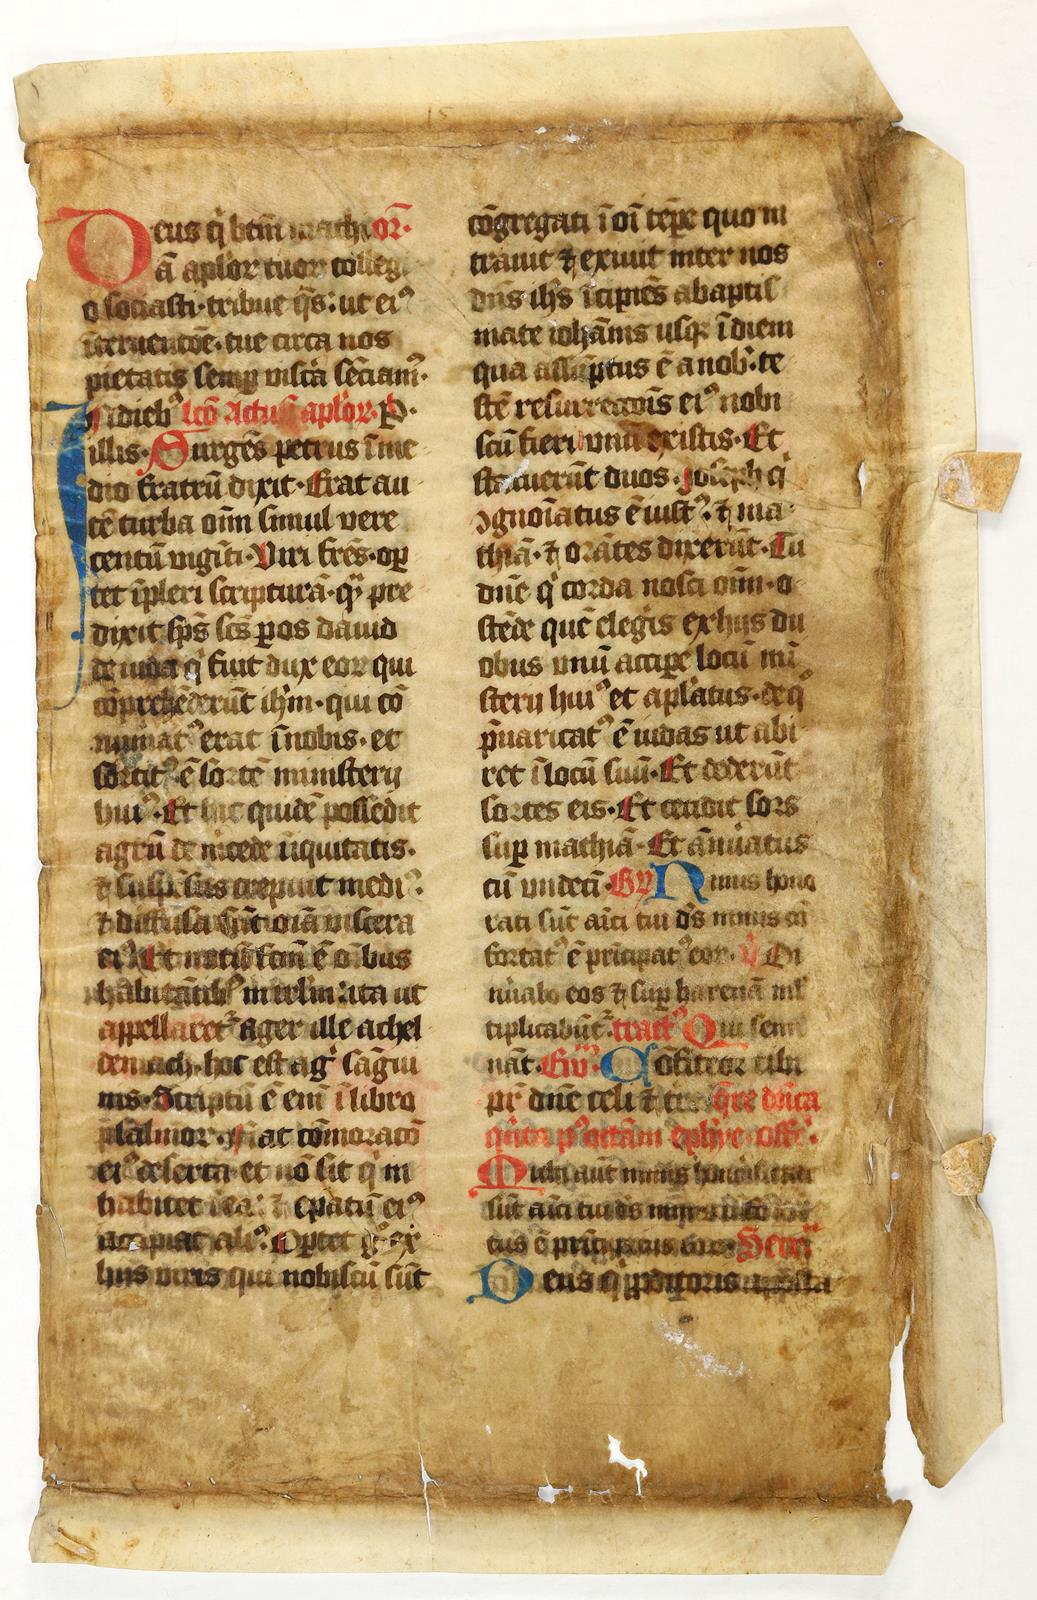 Deus q̇ btm̄ mathi or̄·
ā aplor tuor colleg
o sociasti· tribue q̄s: ut eiꝰ
ītervencōe· tue circa nos
pietatis semꝑ viscˀa sēciamꝰ·
In dieb lcō Actuū aplor· P·
illis· Surgēs petrus ī me
dio fratrū dixit· Erat au
tē turba oīm simul vere
centū viginti· Viri frēs· oꝑ
tet īpleri scripturā· qˀ pre
dixit sp̄s scs̄ ꝑ os dauid
de iuda q̇ fuit dux eor qui
cōprehēderūt ihm̄· qui cō
numatꝰ erat ī nobis· et
sortitꝰ ē sortē ministerij
huiꝰ· Et hic quidē possedit
agrū de mˀcede iniquitatis·
⁊ suspēsus crepuit mediꝰ·
⁊ diffusa sūt oīa viscera
eiꝰ· Et notū fcm̄ ē oībus
habitātibꝰ in irlm̄· ita ut
appellaretˀ ager ille achel
demach· hoc est agˀ sāgui
nis· Scriptū ē em̄ ī libro
psalmor· Fiat cōmoracō
eiꝰ deserta· et nō sit q̇ in
habitet ī ea: ⁊ epatū eiꝰ
accipiat aliꝰ· Oꝑtet gͦ ex
hijs viris qui nobiscū sūt
cōgregati ī oī tēꝑe quo in
trauit ⁊ exiuit inter nos
dn̄s ihs̄ īcipiēs a baptis
mate iohānis usq ī diem
qua assūptus ē a nob· te
stē resurrectōis eiꝰ nobi
scū fieri vnū ex istis· Et
statuerūt duos· Joseph q̇
ↄgnoīatus ē iustꝰ· ⁊ ma
thiā· ⁊ orātes dixerūt· Tu
dn̄e q̇ corda nosti oīm· o
stēde quē elegis ex hijs du
obus vnū accipe locū mī
sterij huiꝰ et aplatus· de qͦ
p̄uaricatꝰ ē iudas ut abi
ret ī locū suū· Et dederūt
sortes eis· Et cecidit sors
suꝑ mathiā· Et ānuatus
cū vndecī· Gr̄ Nimis hono
rati sūt aīci tui ds̄ nimis cō
fortatꝰ ē prīcipatꝰ eor· V̄ Di
nu̇abo eos ⁊ suꝑ harenā ml̄
tiplicabūtˀ· tractꝰ Qui semi
nāt· Ew̄· Cōfiteor tibi
pr̄ dn̄e celi ⁊ tre q̄re dn̄ica
q̄nta pꝰ octām ephỹe· off̄·
Michi aut nimis honorificati
sūt aīci tui ds̄ nimis ↄforta
tus ē prīcipatus eor· Secrˀ
Deus q̇ ꝓditoris aposta